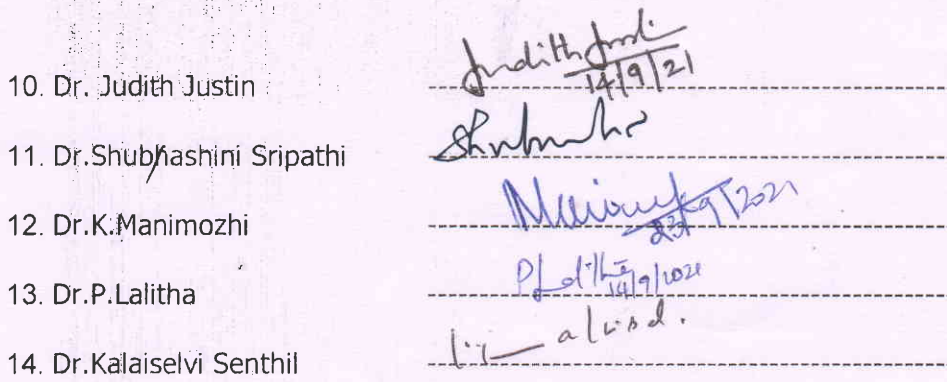 10. Dr. Judith Justin Judith Justi
14/9/21
11. Dr.Shubhashini Sripathi
12. Dr.K.Manimozhi
23/9/2021
13. Dr.P.Lalitha P.Lalitha
14/9/2021
14. Dr.Kalaiselvi Senthil